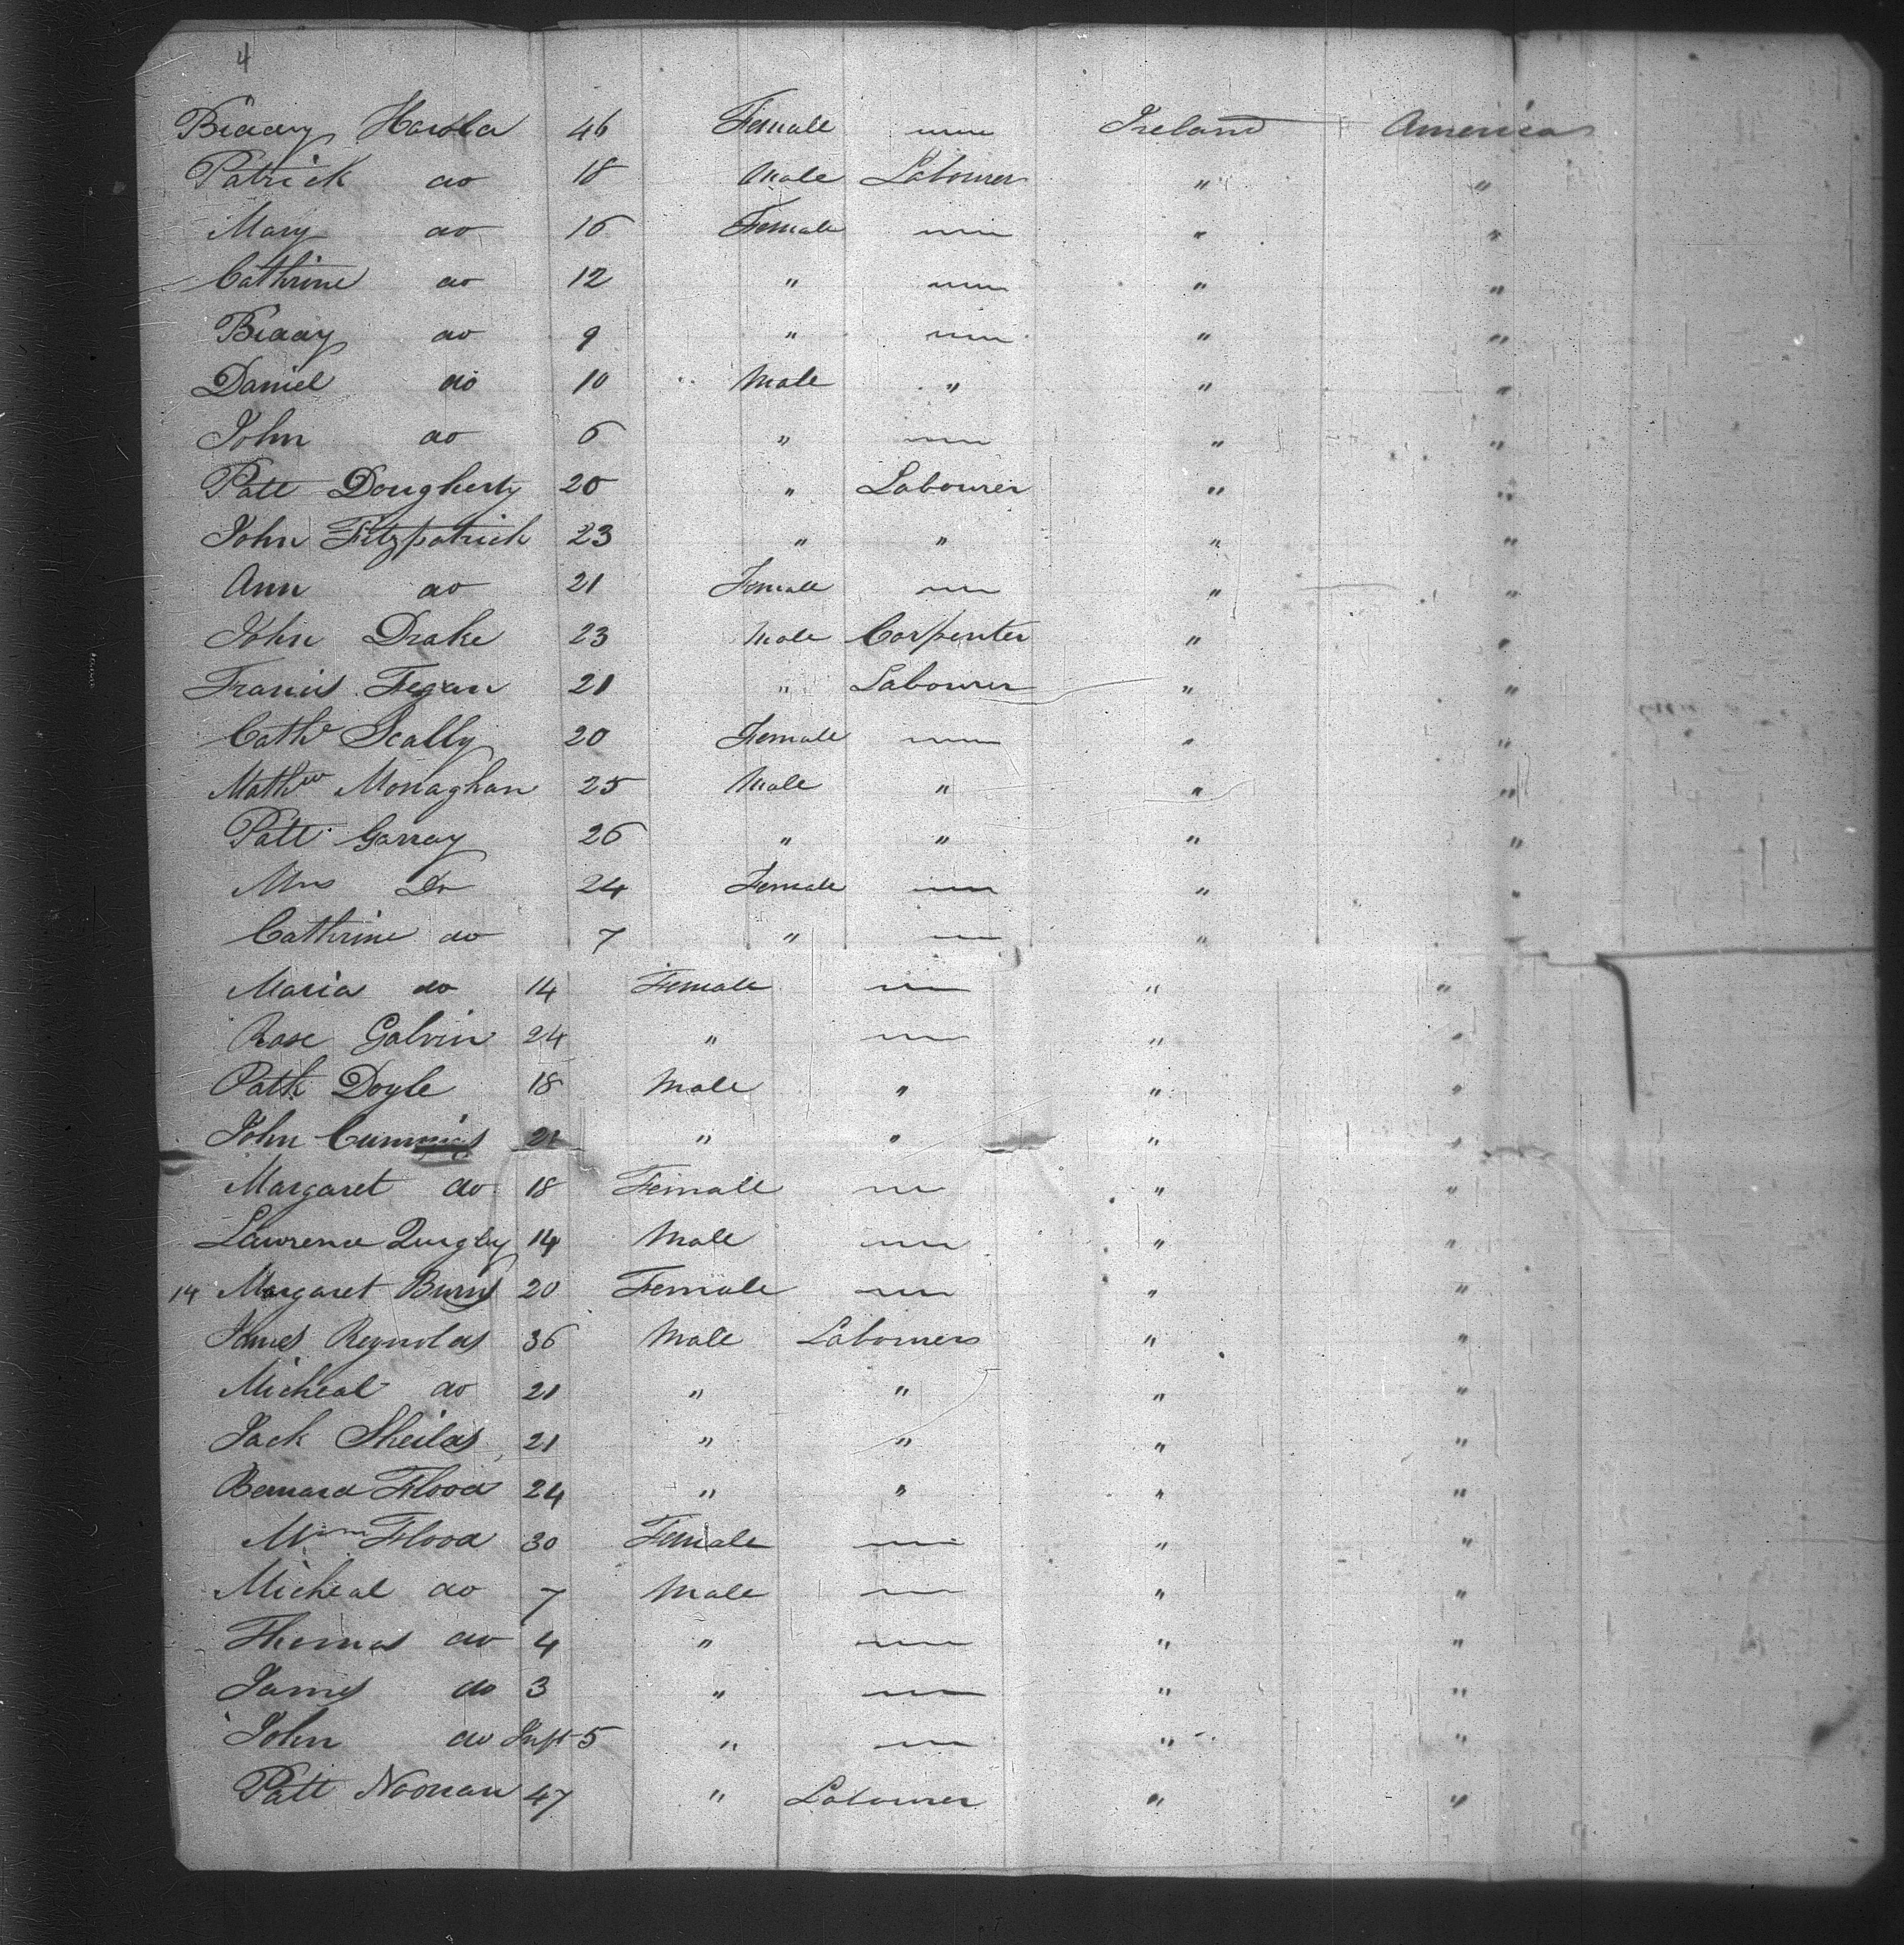 4
Biddy 46 Female " Ireland America
Patrick do 18 Male Labourer " "
Mary do 16 Female " " "
Cathrine do 12 " " " "
Biddy do 9 " " " "
Daniel do 10 Male " " "
John do 6 " " " "
Patt Dougherty 20 " Labourer " "
John Fitzpatrick 23 " " " "
Ann do 21 Female " " "
John Drake 23 Male Carpenter " "
Francis Fegan 21 " Labourer " "
Cathe Scally 20 Female " " "
Mathw Monaghan 25 Male " " "
Patt Garray 26 " " " "
Mrs Do 24 Female " " "
Cathrine do 7 " " "
Maria do 14 Female " " "
Rose Galvin 24 " " " "
Patk Doyle 18 Male " " "
John Cummins 21 " " " "
Margaret do 18 Female " " "
Lawrence Quigley 14 Male " " "
14 Margaret Burns 20 Female " " "
James Reynolds 36 Male Labourers " "
Micheal do 21 " " " "
Jack Sheilds 21 " " " "
Bernard Flood 24 " " " "
Flood 30 Female " " "
Micheal do 7 Male " " "
Thomas do 4 " " " "
James do 3 " " " "
John do Inft 5 " " " "
Patt Noonan 47 " Labourer " "